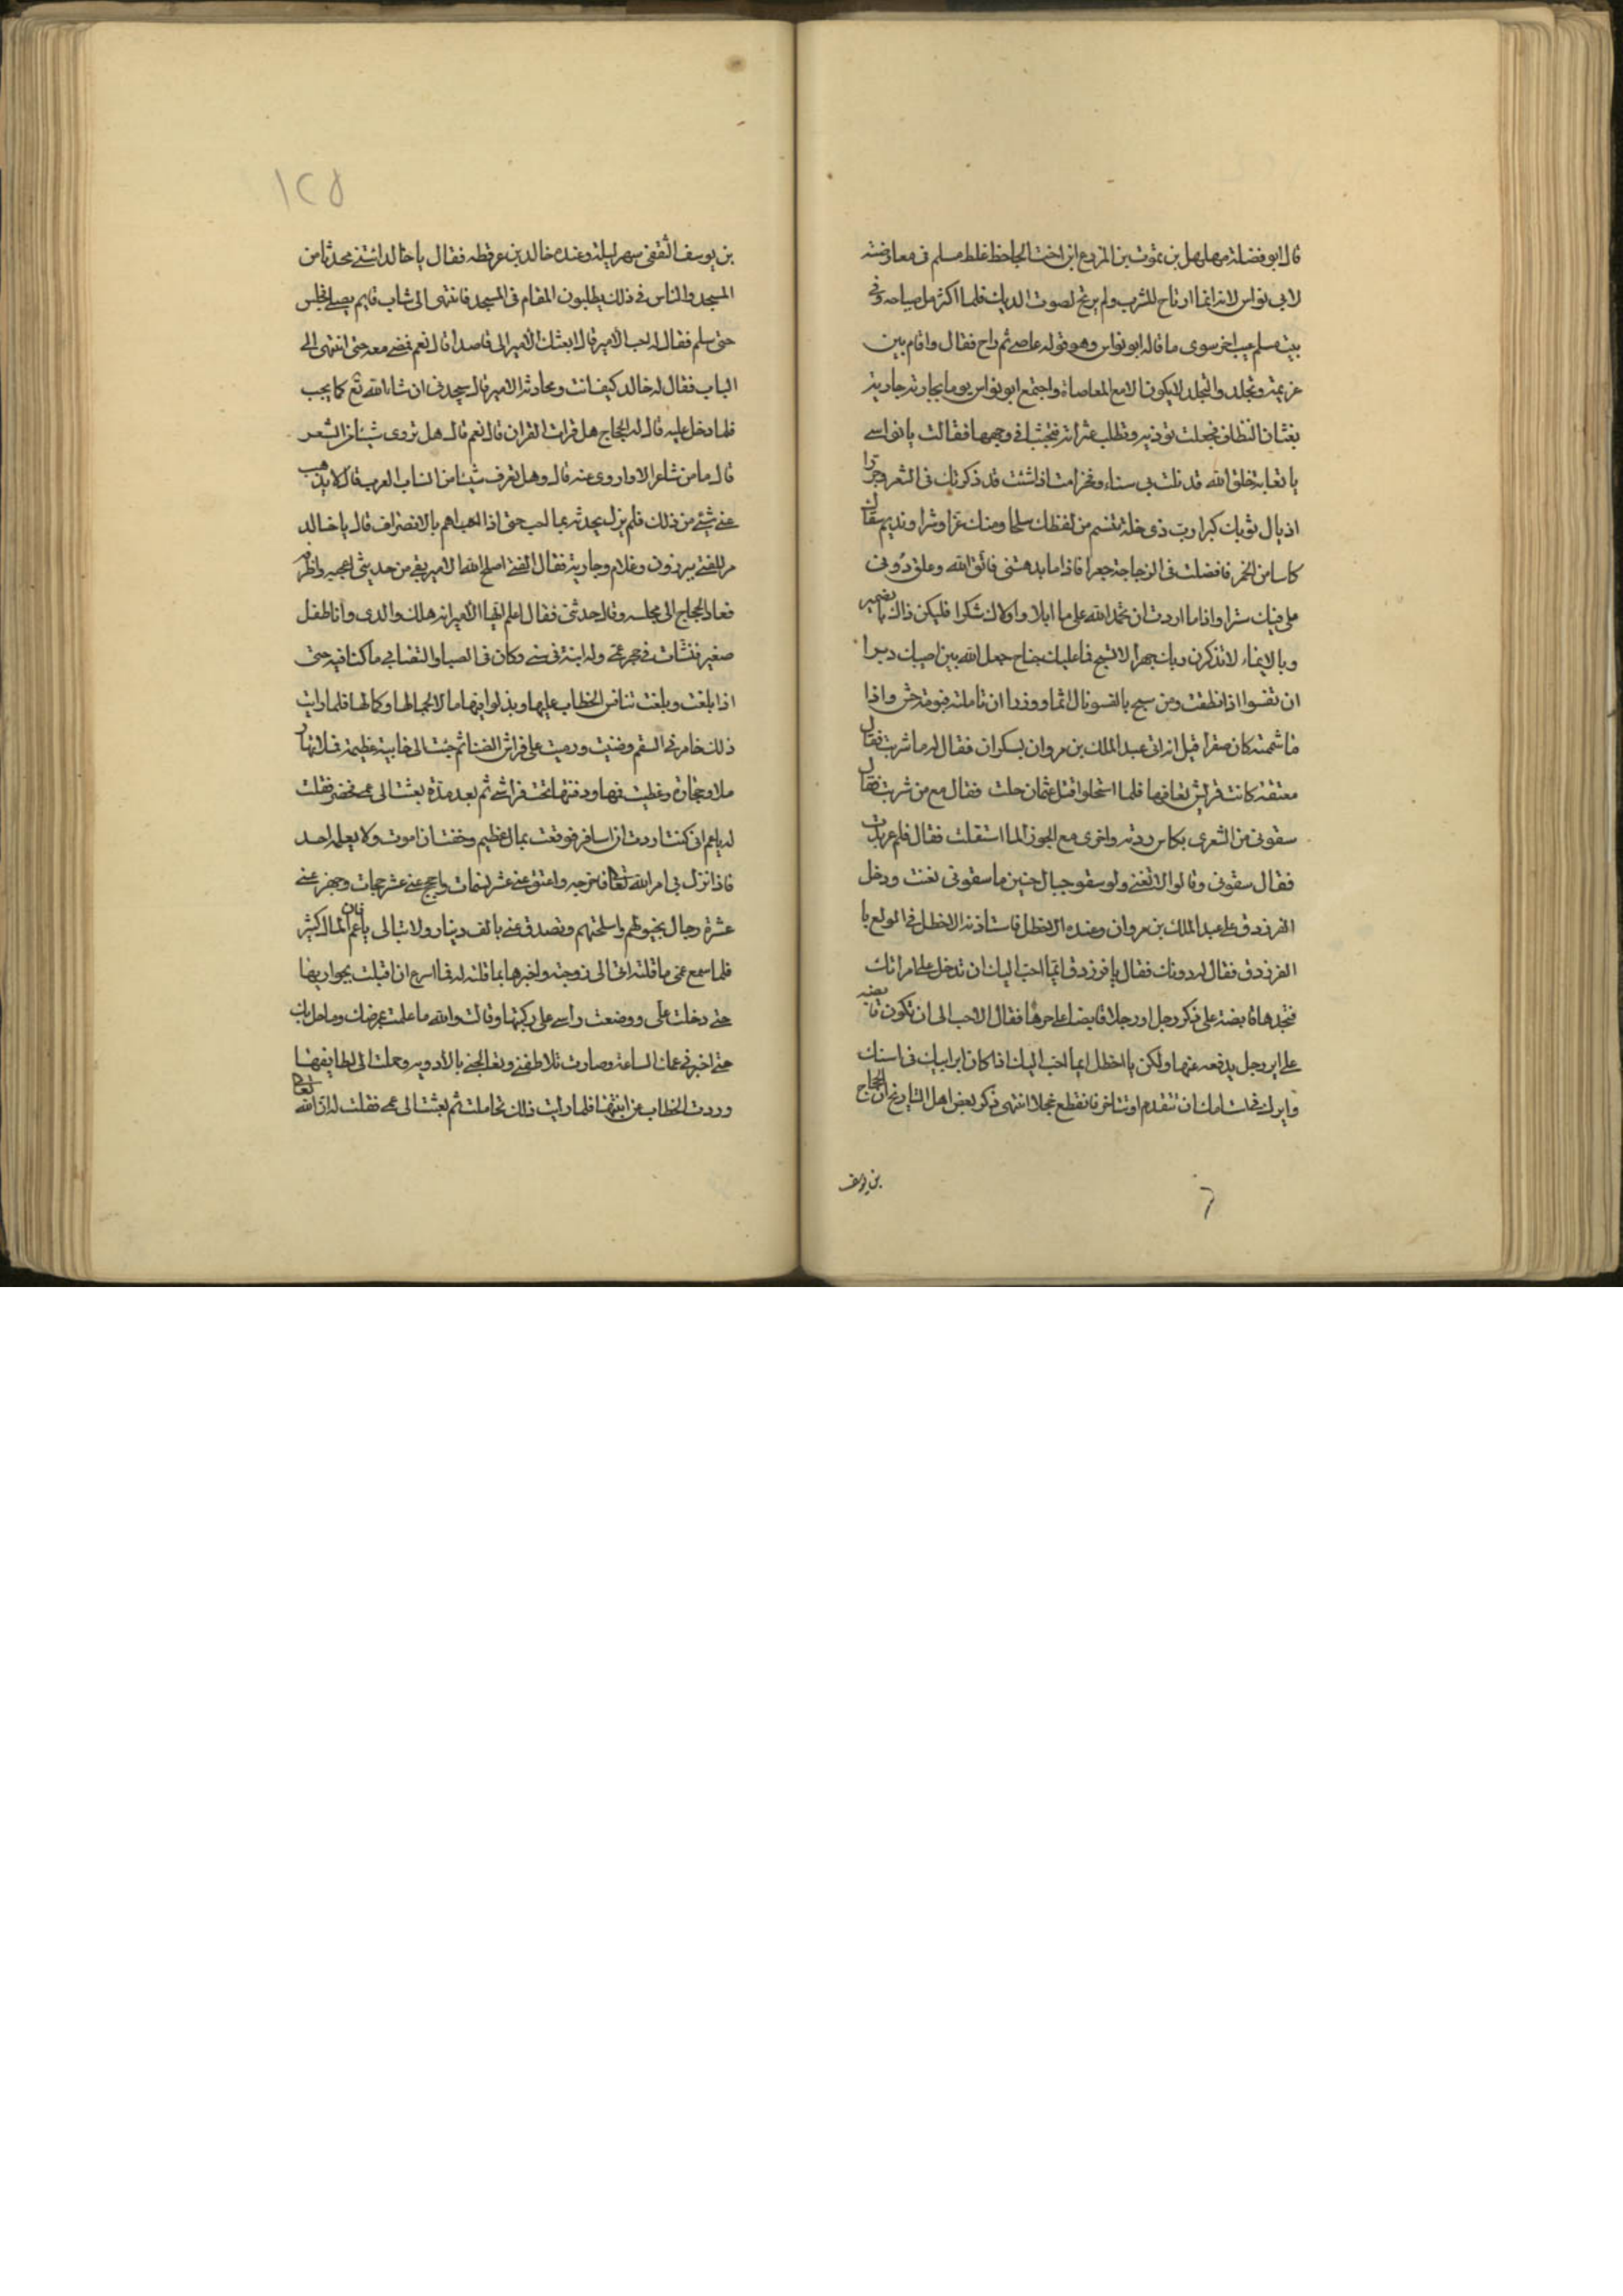 قال ابو فضلة مهلهل بن يموت بن المزرع ابن اخت الجاحظ غلط مسلم فى معارضته
لابى نواس لانه انما ارتاح للشرب ولم يرتح لصوت الديك فلما اكثر من صياحه وفى
بيت مسلم عيب اخر سوى ما قاله ابو نواس وهو قوله عاصى ثم راح فقال واقام بين
عزيمة وتجلد والتجلد لا يكون الا مع المعاصاة واجتمع ابو نواس يوما بجارته جارية
بغثان النطاف فجعلت توذيه وتطلب عثراته فتجشا فى وجهها فقالت يا نواسى
يا نفاية خلق الله قد نلت بى سناء وفخرا مت اذا شئت قد ذكرتك فى الشعر وجررا
اذيال ثوبك كبرا رب ذى خلة تنسم من لفظك سلحا ومنك عرا وشرا ونديم سقاك
كاسا من الخمر فافضلت فى الزجاجة جعرا فاذا ما بدهتنى فاتق الله وعلق دونى
على فيك سترا واذا ما اردت ان تحمد الله على ما ابلا واولاك شكرا فليكن ذاك بالضمير
وبالايماء لا تذكرن ربك جهرا لا تسبح فما عليك جناح جعل الله بين لحييك دبرا
ان تفسوا اذا نطقت ومن سبح بالفسو نال اثما ووزرا ان تاملته فبومة حش واذا
ما شممته كان صقرا قيل انه اتى عبد الملك بن مروان بسكران فقال له ما شربت فقال
معتقة كانت قريش تعافها فلما استحلوا قتل عثمان حلت فقال مع من شربت فقال
سقونى من الشعرى بكاس ردته واخرى مع الجوزا لما استقلت فقال فلم عربدت
فقال سقونى وقالوا لا تغنى ولو سقو جبال حنين ما سقونى لغنت ودخل
الفرزدق على عبد الملك بن مروان وعنده الاخطل فاستاذنه الاخطل فى المولع با
الفرزدق فقال له دونك فقال يا فرزدق ايما احب اليك ان تدخل على امراتك
فتجدها قابضة على ذكر رجل او رجلا قابضا على حرها فقال الاحب الى ان تكون قابضه
على اير رجل يدفعه عنها ولكن يا اخطل ايما احب اليك اذا كان اير ابيك فى استك
وايرك فى است امك ان تتقدم او تتاخر فانقطع خجلا انتهى ذكر بعض اهل التاريخ ان الحجاج
بن يوسف
١٢٥
بن يوسف الثقفى سهر ليلة وعنده خالد بن عرفطه فقال يا خالد ائتنى بمحدث من
المسجد والناس فى ذلك يطلبون المقام فى المسجد فانتهى الى شاب قايم يصلى فجلس
حتى سلم فقال له اجب الامير قال ابعثك الامير الى قاصدا قال نعم فمضى معه حتى انتهى الى
الباب فقال له خالد كيف انت ومحادثة الامير قال ستجدنى ان شا الله تع كما يحب
فلما دخل عليه قال له الحجاج هل قرات القران قال نعم قال هل تروى شيئا من الشعر
قال ما من شاعر الا واروى عنه قال وهل تعرف شيئا من انساب العرب قال لا يذهب
عنى شيئ من ذلك فلم يزل يحدثه بما احب حتى اذا هم بالانصراف قال يا خالد
مر للفتى ببرذون وغلام وجارية فقال الفتى اصلح الله الامير بقى من حديثى اعجبه واظرفه
فعاد الحجاج الى مجلسه وقال حدثنى فقال اعلم ايها الامير انه هلك والدى وانا طفل
صغير فنشات فى حجر عمى وله ابنة فى سنى وكان فى الصبا والتصابى ما كنا فيه حتى
اذا بلغت وبلغت تنافس الخطاب عليها وبذلوا فيها مالا لجمالها وكمالها فلما رايت
ذلك خامرنى السقم وضنيت ورميت على فراش الضنا ثم جئت الى خابية عظيمة فلاتها ر
ملا وحجارة وغطيت فمها ودفنتها تحت فراشى ثم بعد مدة بعثت الى عمى فحضر فقلت
له يا عم انى كنت اردت ان اسافر فوقعت بمال عظيم وخفت ان اموت ولا يعلمه احد
فاذا نزل بى امر الله تعالى فاخرجه واعتق عنى عشر نسمات واحجج عنى عشر حجات وجهز عنى
عشرة رجال بخيولهم واسلحتهم وتصدق عنى بالف دينار ولا تبالى يا عم فان المال كثير
فلما سمع عمى ما قلته اتى الى زوجته واخبرها بما قلته له فما اسرع ان اقبلت بجواريها
حتى دخلت على ووضعت راسى على ركبتها وقالت والله ما علمت بمرضك وما حل بك
حتى اخبرنى عمك الساعة وصارت تلاطفنى وتعالجنى بالادويه وحملت الى لطايفها
وردت الخطاب عن ابنتها فلما رايت ذلك تحاملت ثم بعثت الى عمى فقلت له ان الله تعالى